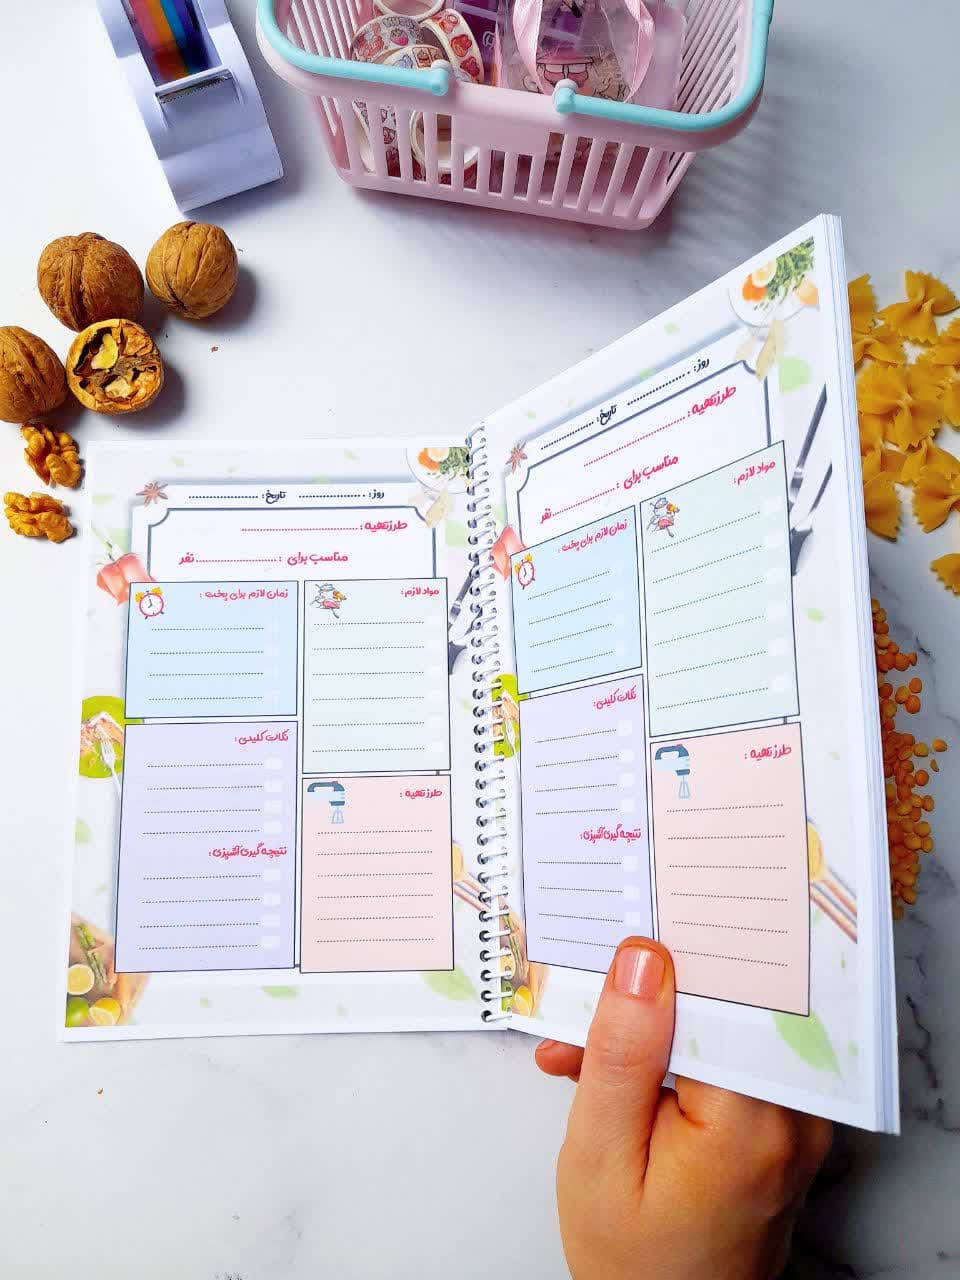 روز: .................... تاریخ: ....................
طرز تهیه : ..............................
مناسب برای : .................... نفر
مواد لازم:
زمان لازم برای پخت :
نکات کلیدی:
نتیجه گیری آشپزی:
طرز تهیه :
روز: .................... تاریخ: ....................
طرز تهیه : ..............................
مناسب برای : .................... نفر
مواد لازم:
زمان لازم برای پخت :
نکات کلیدی:
نتیجه گیری آشپزی:
طرز تهیه :